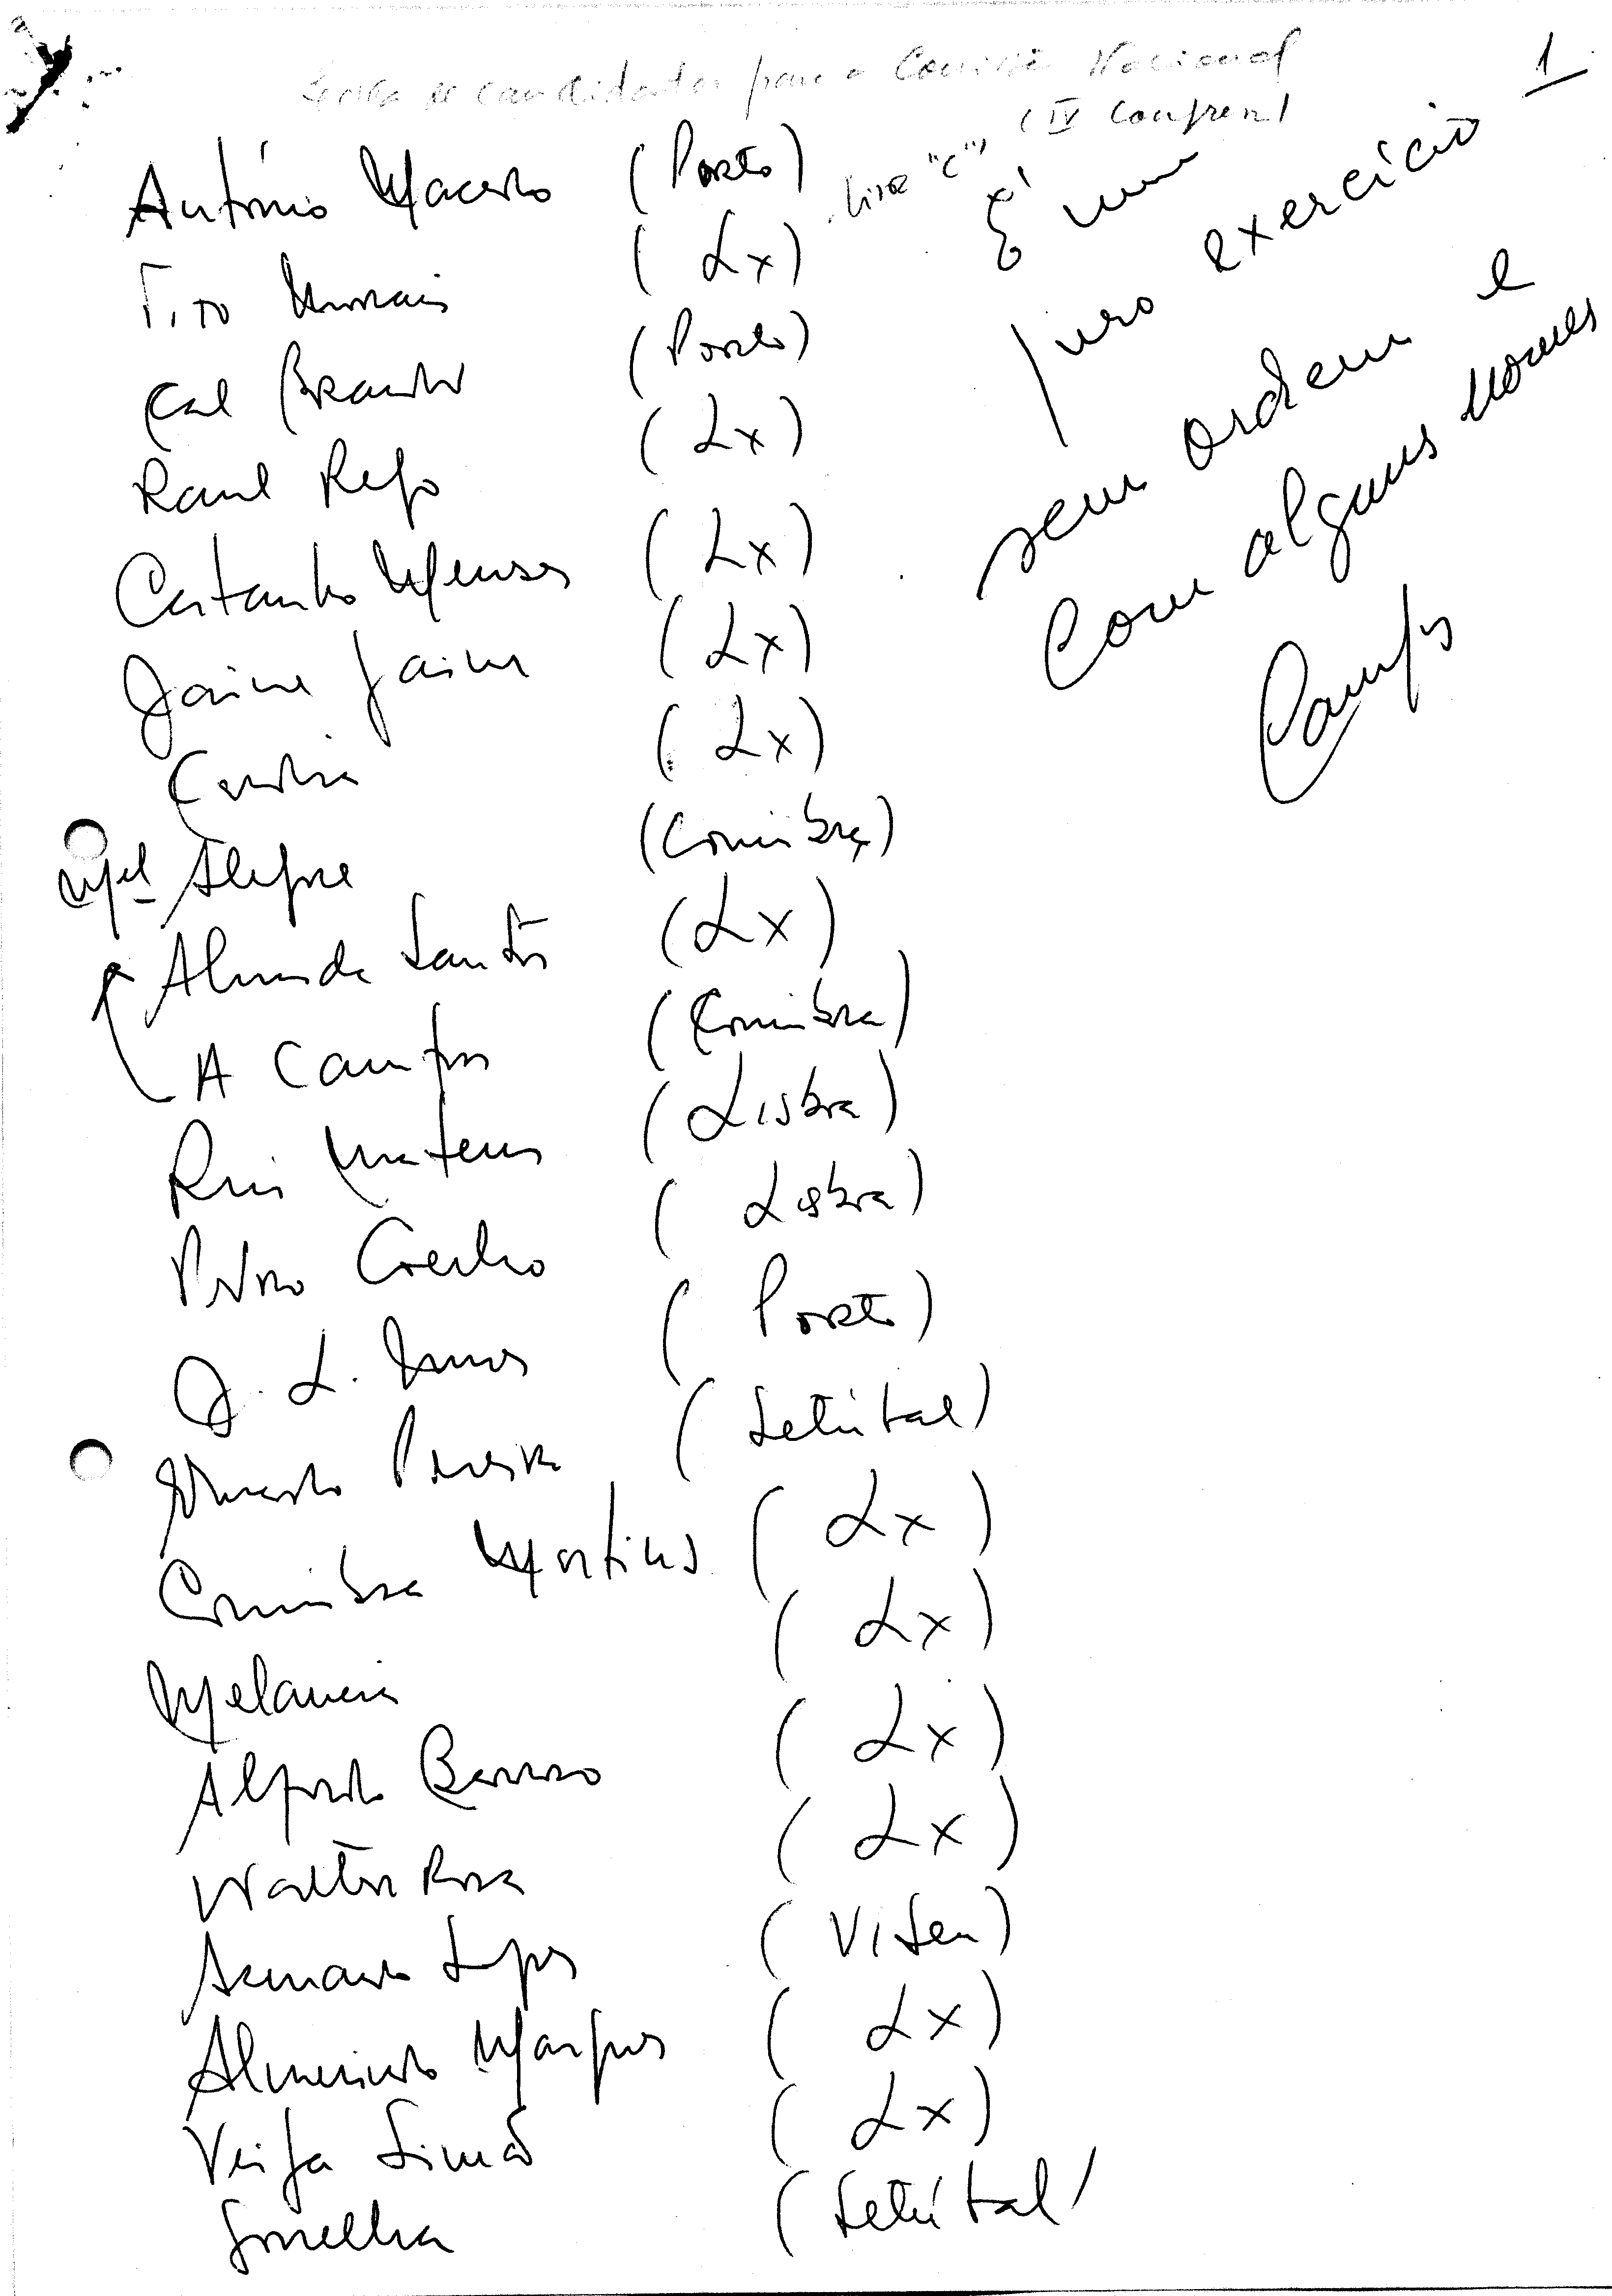 1
de candidatos para a Comissão Nacional
(IV Congresso)
lista "C"
António Macedo (Porto)
Tito Morais (Lx)
Cal Brandão (Porto)
Raul Rego (Lx)
Catanho Menses (Lx)
Jaime Gama (Lx)
Cardia (Lx)
Mel Alegre (Coimbra)
Almeida Santos (Lx)
A Campos (Coimbra)
Rui Mateus (Lisboa)
Pedro Coelho (Lisboa)
J. L. Nunes (Porto)
Eduardo Pereira (Setúbal)
Coimbra Martins (Lx)
Melancia (Lx)
Alfredo Barroso (Lx)
Walter Rosa (Lx)
Armando Lopes (Viseu)
Almerindo Marques (Lx)
Veiga Simão (Lx)
Gonelha (Setúbal)
É um
puro exercício
sem ordem e
Com alguns nomes
Campos